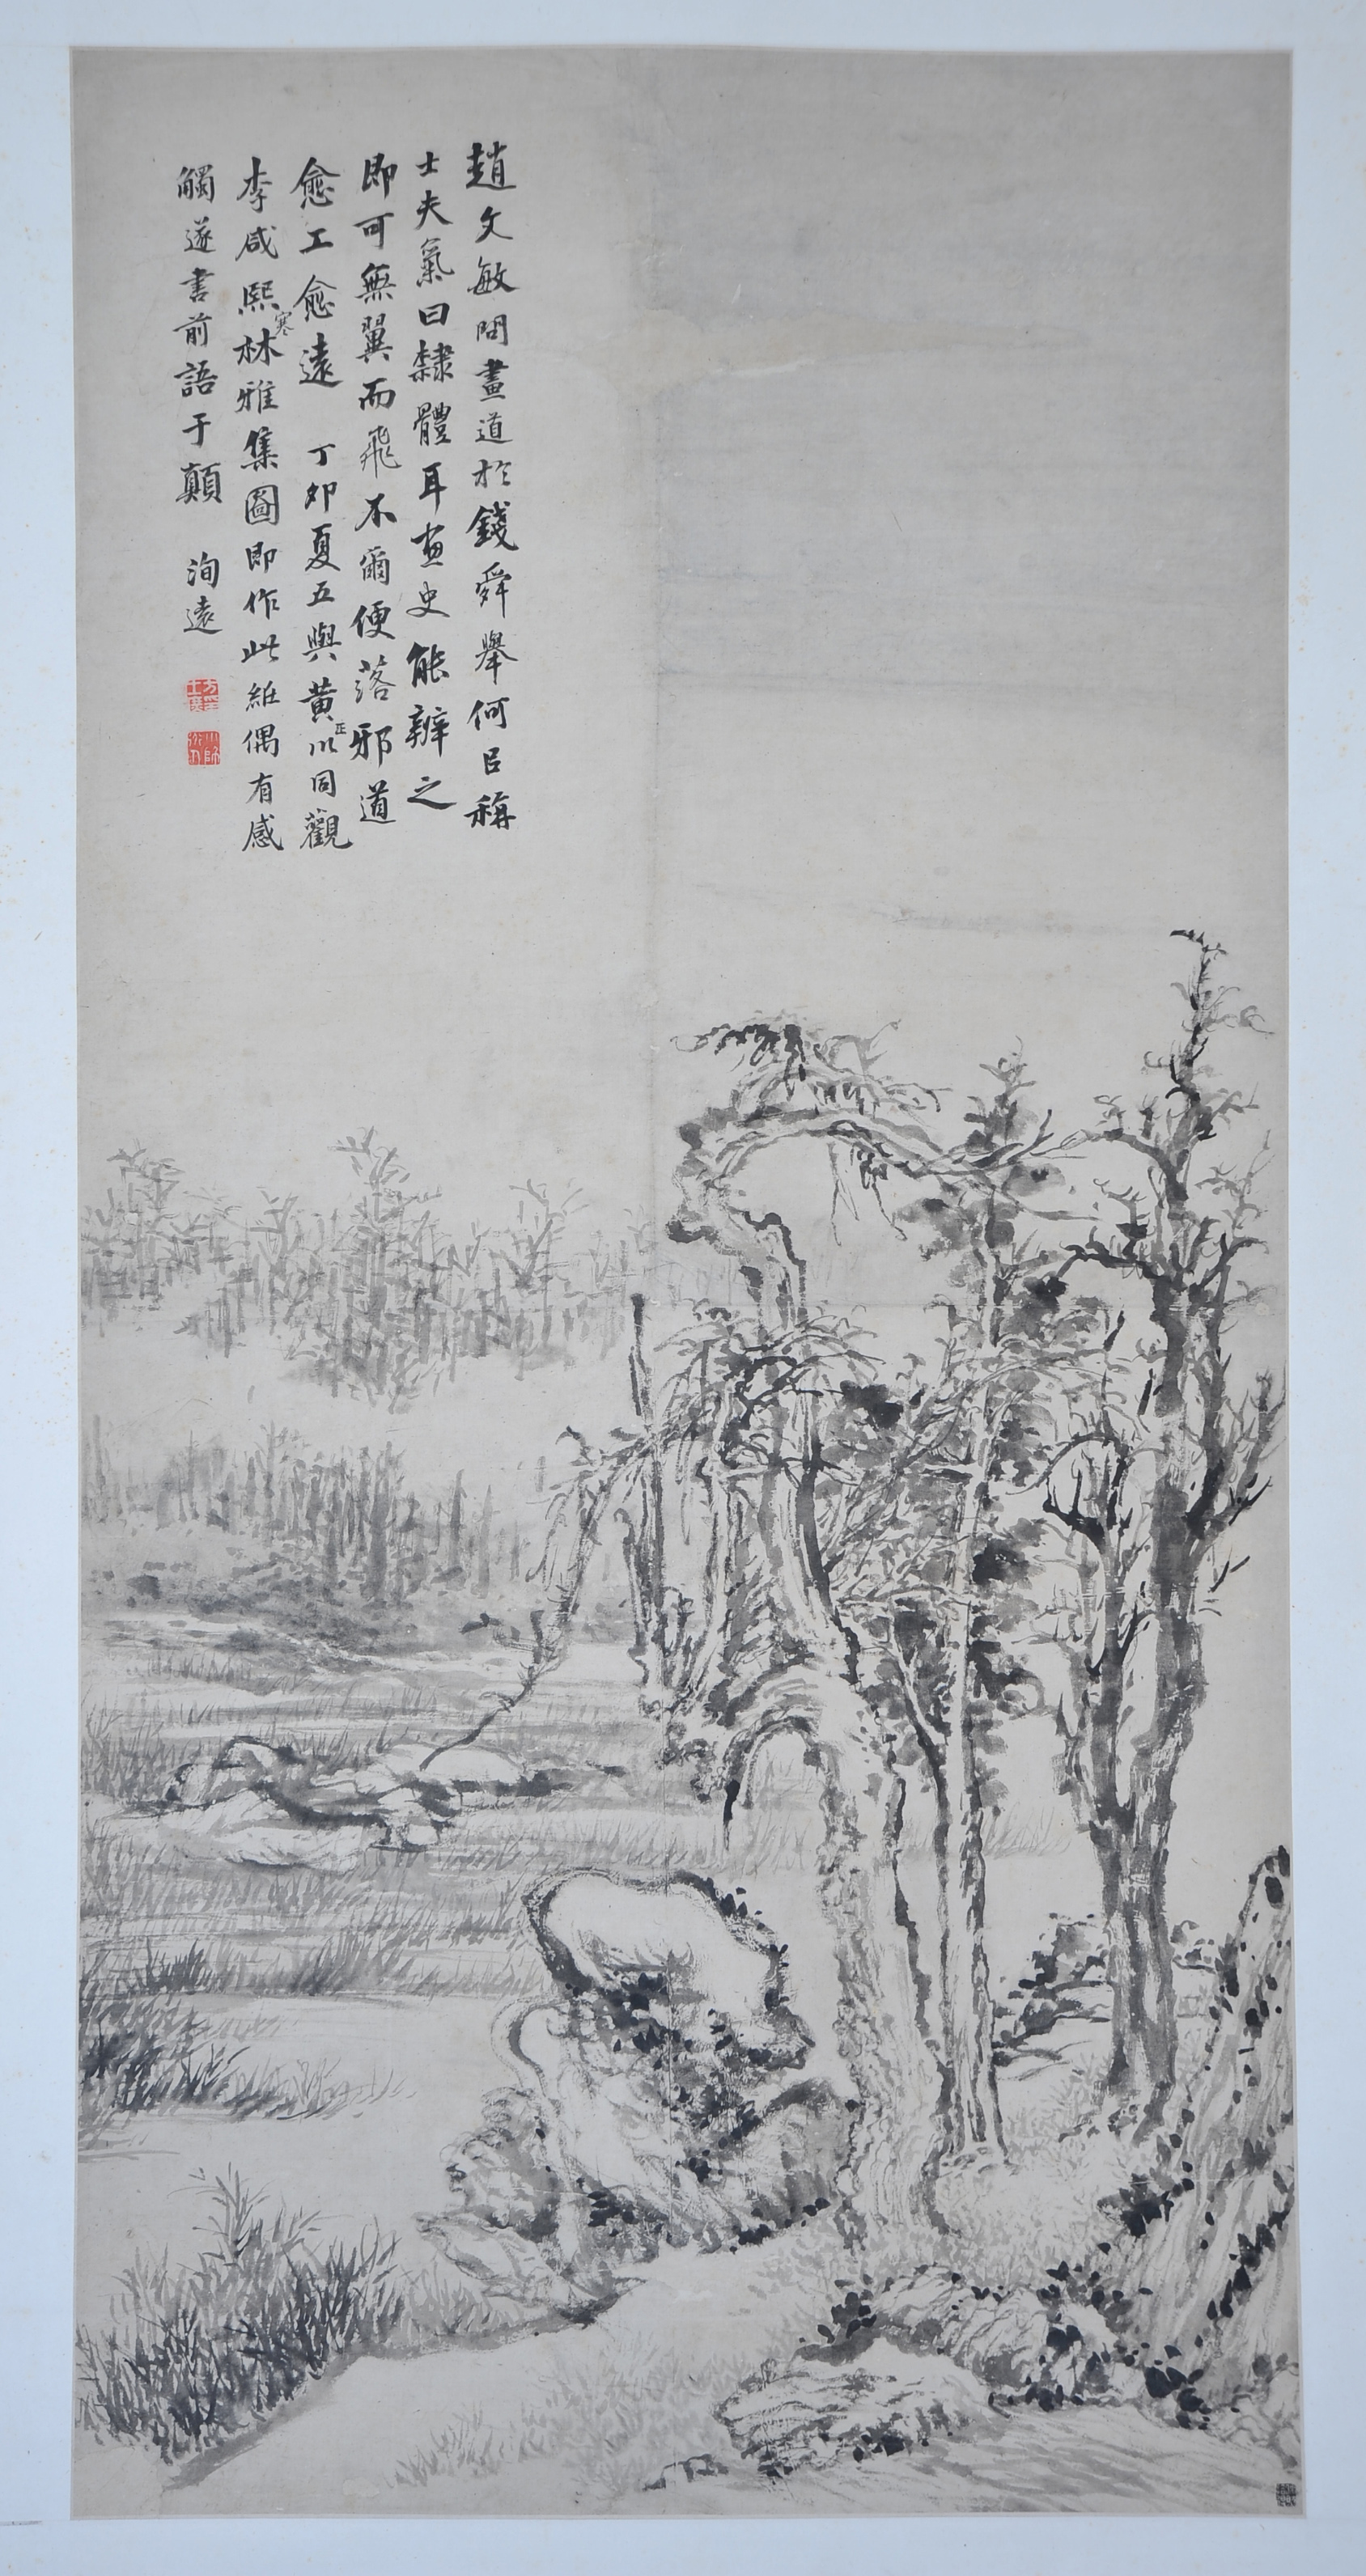 趙文敏問畫道於錢舜舉何㠯稱
士夫氣曰隸體耳畫史能辨之
即可無翼而飛不爾便落邪道
愈工愈遠 丁卯夏五與黃正川同觀
李咸熙寒林雅集圖即作此紙偶有感
觸遂書前語于顛 洵遠